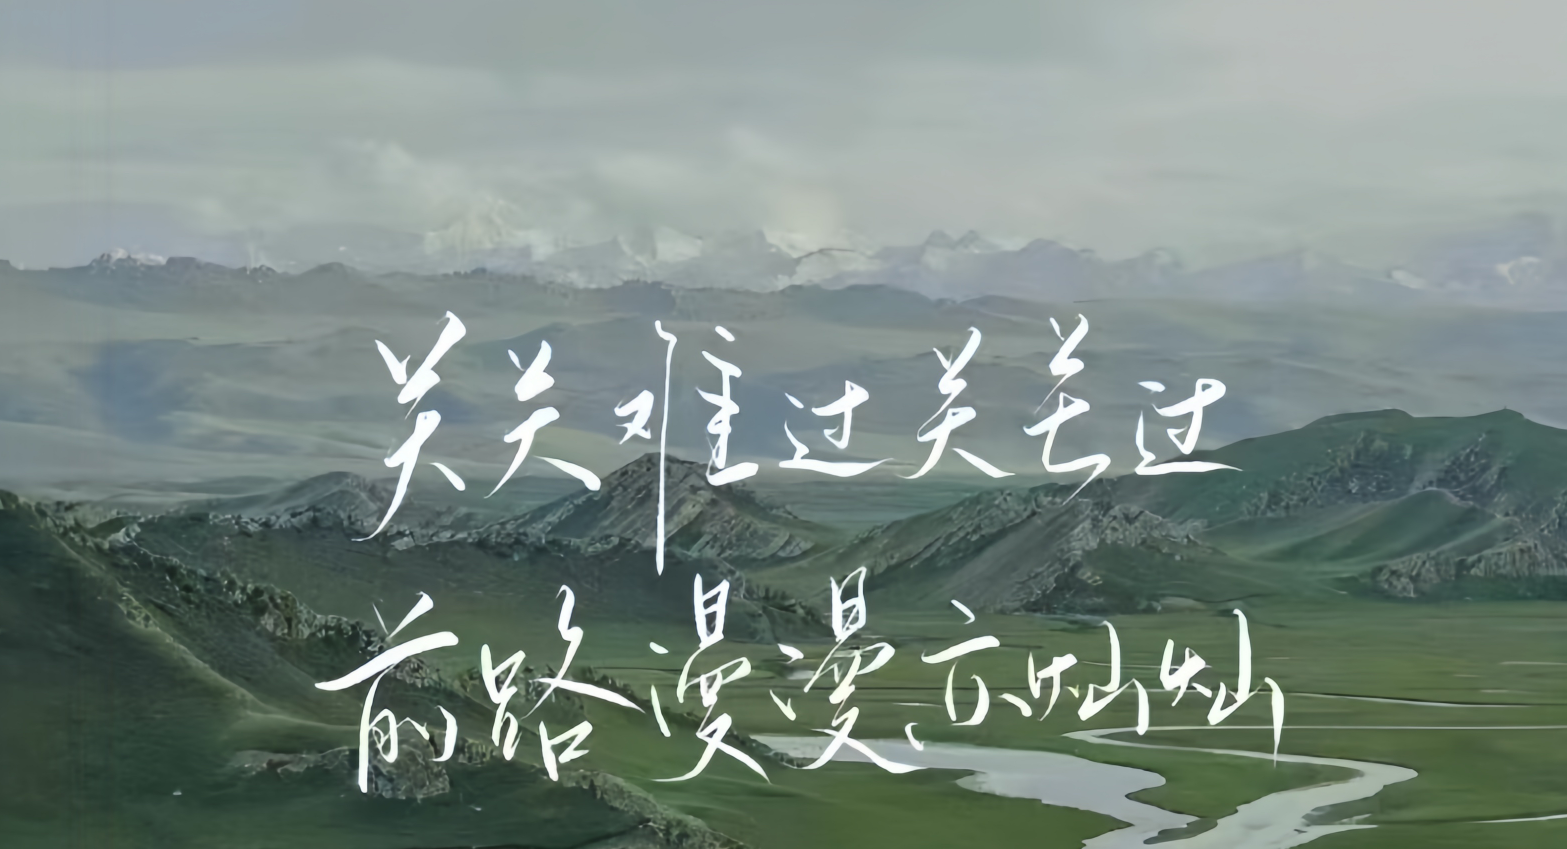 关关难过关关过
前路漫漫亦灿灿